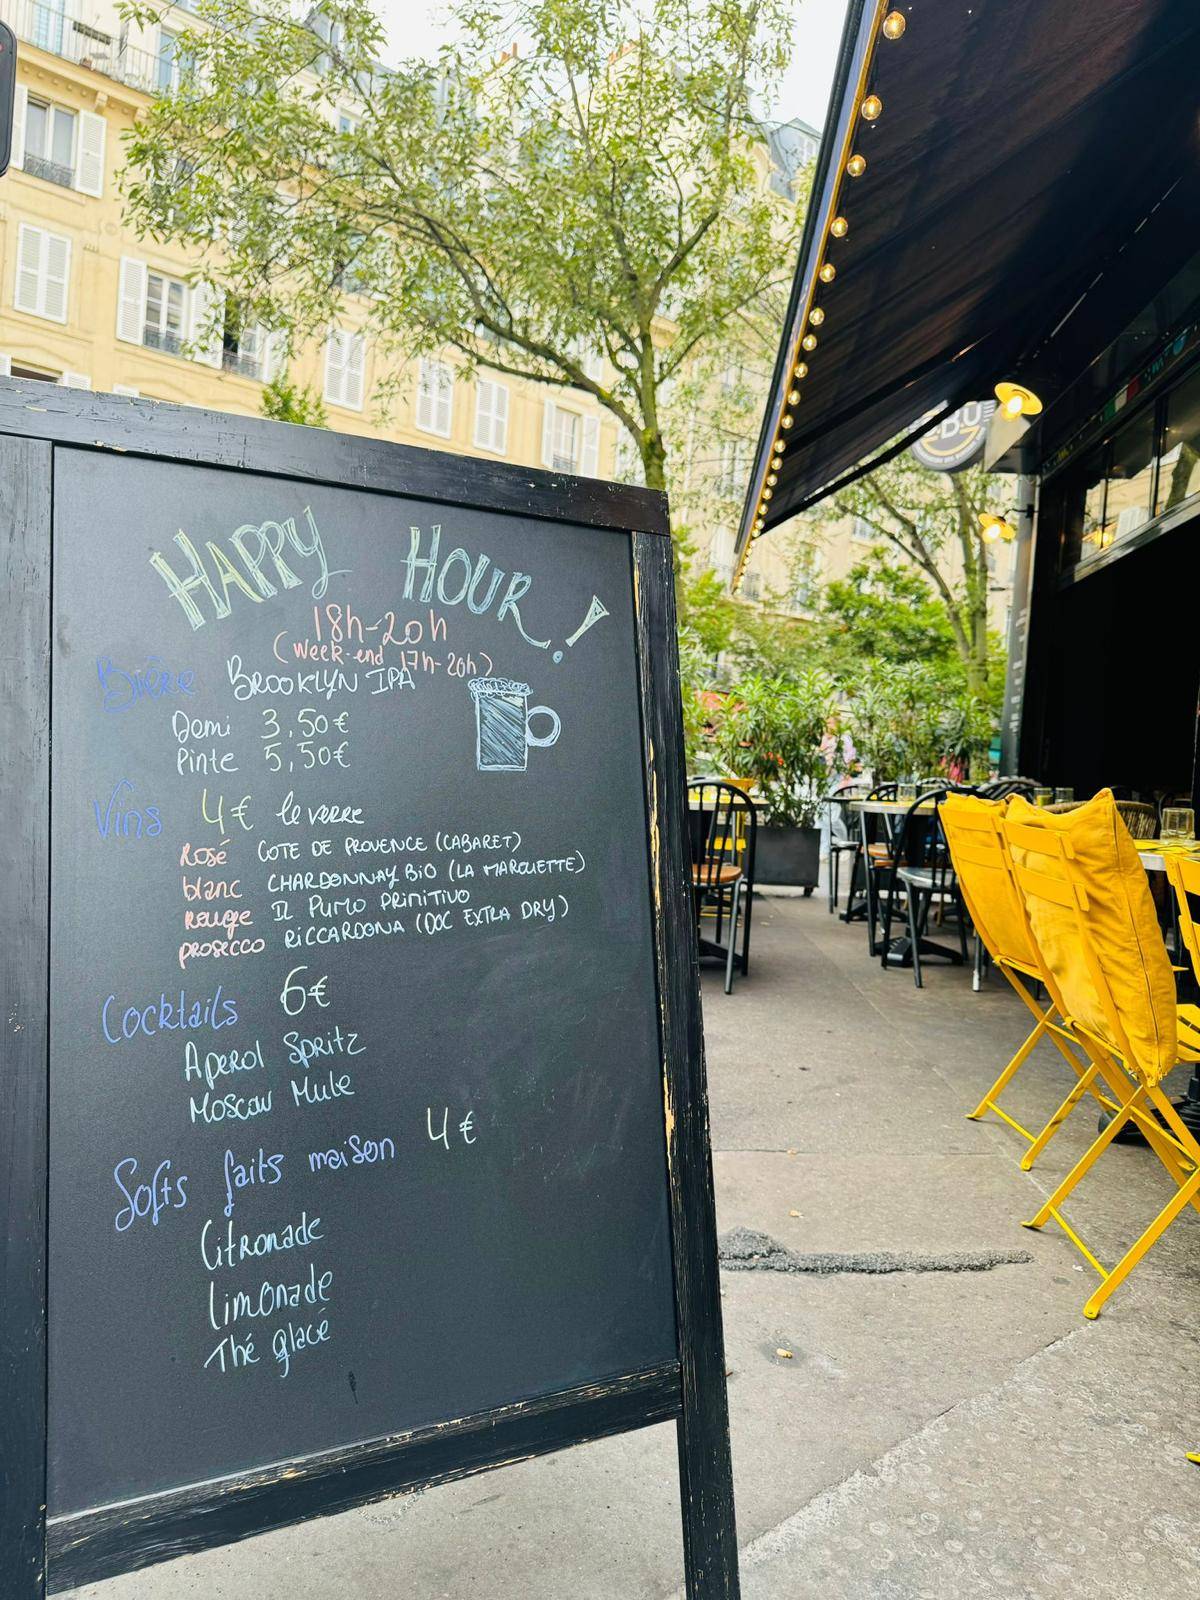 HAPPY HOUR!
18h-20h
(week-end 17h-20h)
Bière BROOKLYN IPA
Demi 3,50€
Pinte 5,50€
Vins 4€ le verre
Rosé COTE DE PROVENCE (CABARET)
blanc CHARDONNAY BIO (LA MAROUETTE)
Rouge IL PUMO PRIMITIVO
prosecco RICCARDONA (DOC EXTRA DRY)
Cocktails 6€
Aperol Spritz
Moscow Mule
Softs faits maison 4€
Citronade
limonade
Thé glacé